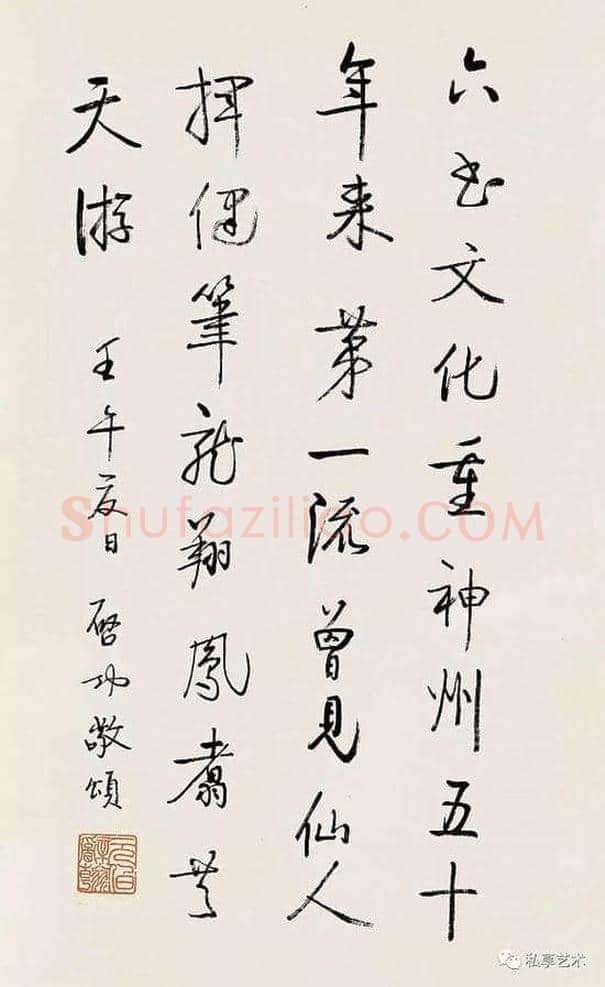 六书文化重神州五十
年来第一流曾見仙人
揮筆龍翔鳳翥
天游
壬午夏日 啓功敬頌
Shufaziliao.COM
私享艺术